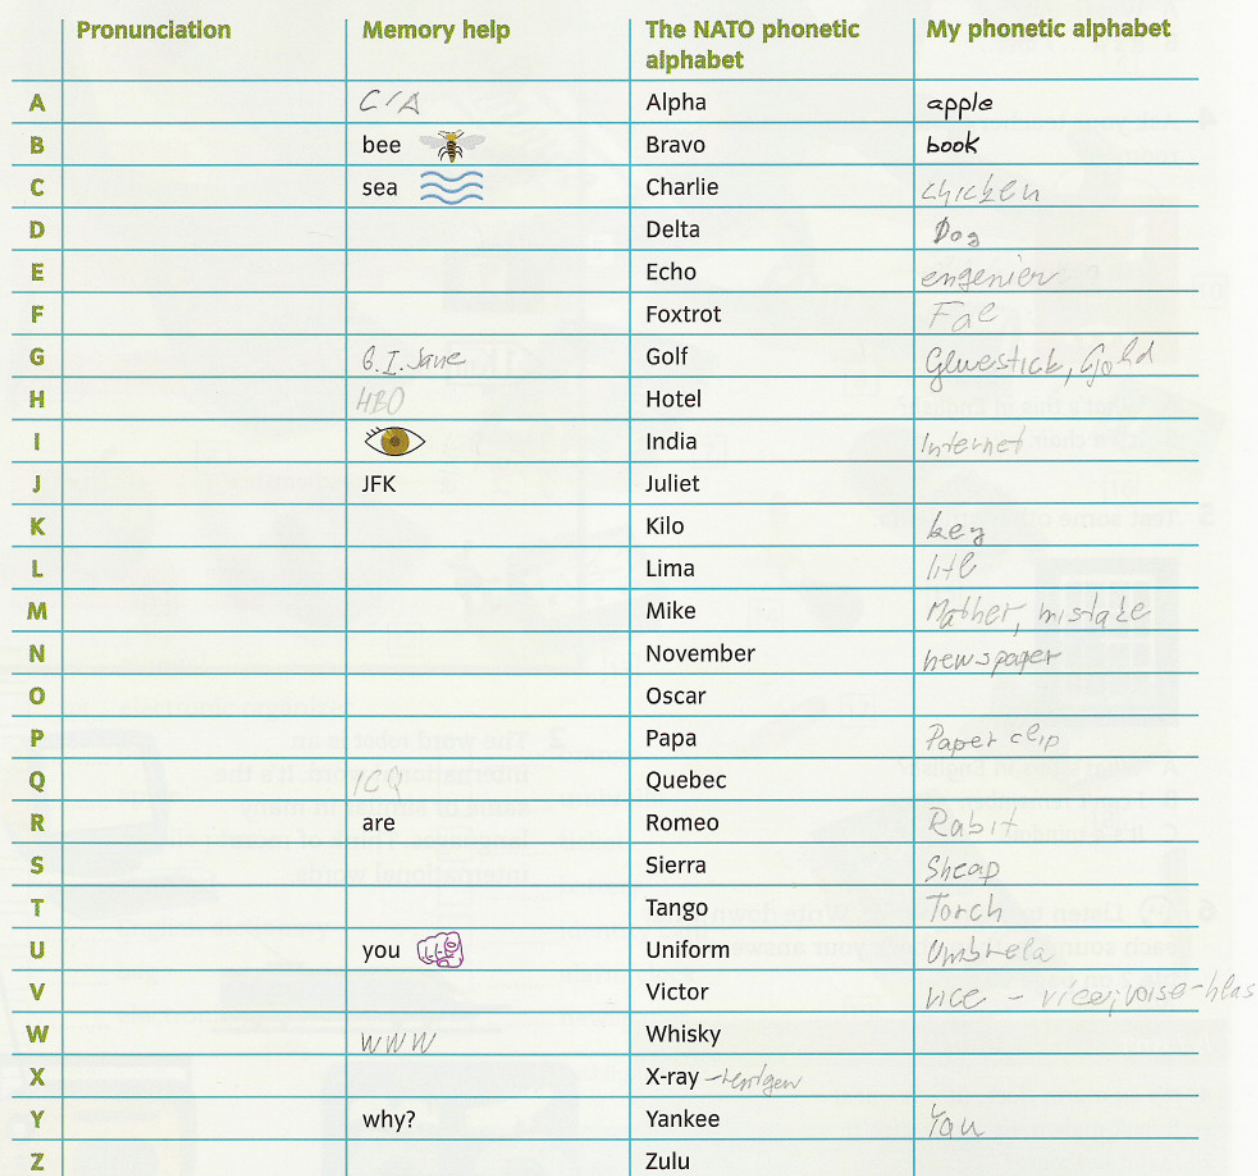 Pronunciation Memory help The NATO phonetic alphabet My phonetic alphabet
A CIA Alpha apple
B bee Bravo book
C sea Charlie chicken
D Delta Dog
E Echo engenier
F Foxtrot
G G.I. Jane Golf Gluestick, Gold
H HBO Hotel
I India Internet
J JFK Juliet
K Kilo key
L Lima litl
M Mike Mather, mistake
N November newspaper
O Oscar
P Papa Paper clip
Q ICQ Quebec
R are Romeo Rabit
S Sierra Sheap
T Tango Torch
U you Uniform Umbrela
V Victor vice - více, voise-hlas
W WWW Whisky
X X-ray -rentgen
Y why? Yankee You
Z Zulu